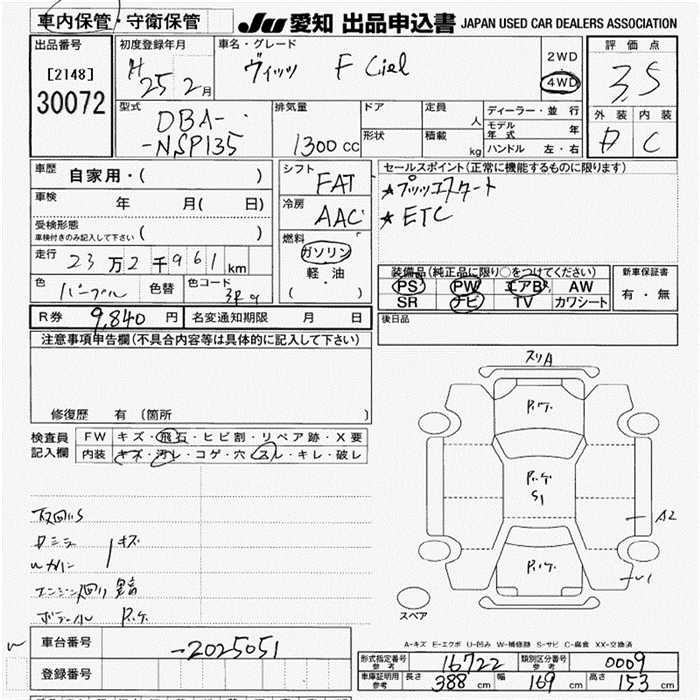 車内保管・守衛保管
JU 愛知 出品申込書 JAPAN USED CAR DEALERS ASSOCIATION
出品番号
[2148]
30072
初度登録年月
H25 2月
車名・グレード
ヴィッツ F Ciel
2WD
4WD
評価点
3.5
外装 内装
D C
型式
DBA-
-NSP135
排気量
1300cc
ドア
形状
定員 人
積載 kg
ディーラー・並行
モデル年式 年
ハンドル 左・右
車歴 自家用・( )
車検 年 月( 日)
受検形態
車検付きのみ記入して下さい ( )
走行 23万2千961km
色 パープル 色替 色コード 3R9
シフト FAT
冷房 AAC
燃料
ガソリン
軽・油
( )
セールスポイント(正常に機能するものに限ります)
★プッシュスタート
★ETC
装備品(純正品に限り○をつけてください)
PS PW エアB AW
SR ナビ TV カワシート
新車保証書
有・無
R券 9,840円 名変通知期限 月 日
後日品
注意事項申告欄(不具合内容等は具体的に記入して下さい)
修復歴 有(箇所 )
検査員記入欄
FW キズ・飛石・ヒビ割・リペア跡・X要
内装 キズ・汚レ・コゲ・穴・スレ・キレ・破レ
キズ
エンジン回り
P.ケ
スリA
P.ケ
P.ケ
S1
P.ケ
A2
U1
スペア
A-キズ E-エクボ U-凹み W-補修跡 S-サビ C-腐食 XX-交換済
車台番号 -2025051
登録番号
形式指定番号参考 16722 類別区分番号参考 0009
車庫証明用参考 長さ 388cm 幅 169cm 高さ 153cm